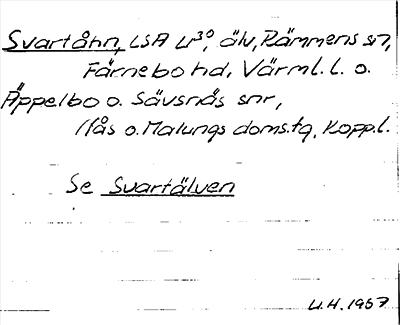 Svartåhn, LSA U³⁰, älv, Rämmens sn,
Färnebo hd, Värml. l. o.
Äppelbo o. Säfsnäs snr,
Nås o. Malungs doms.tg, Kopp.l.
Se Svartälven
U.H. 1957